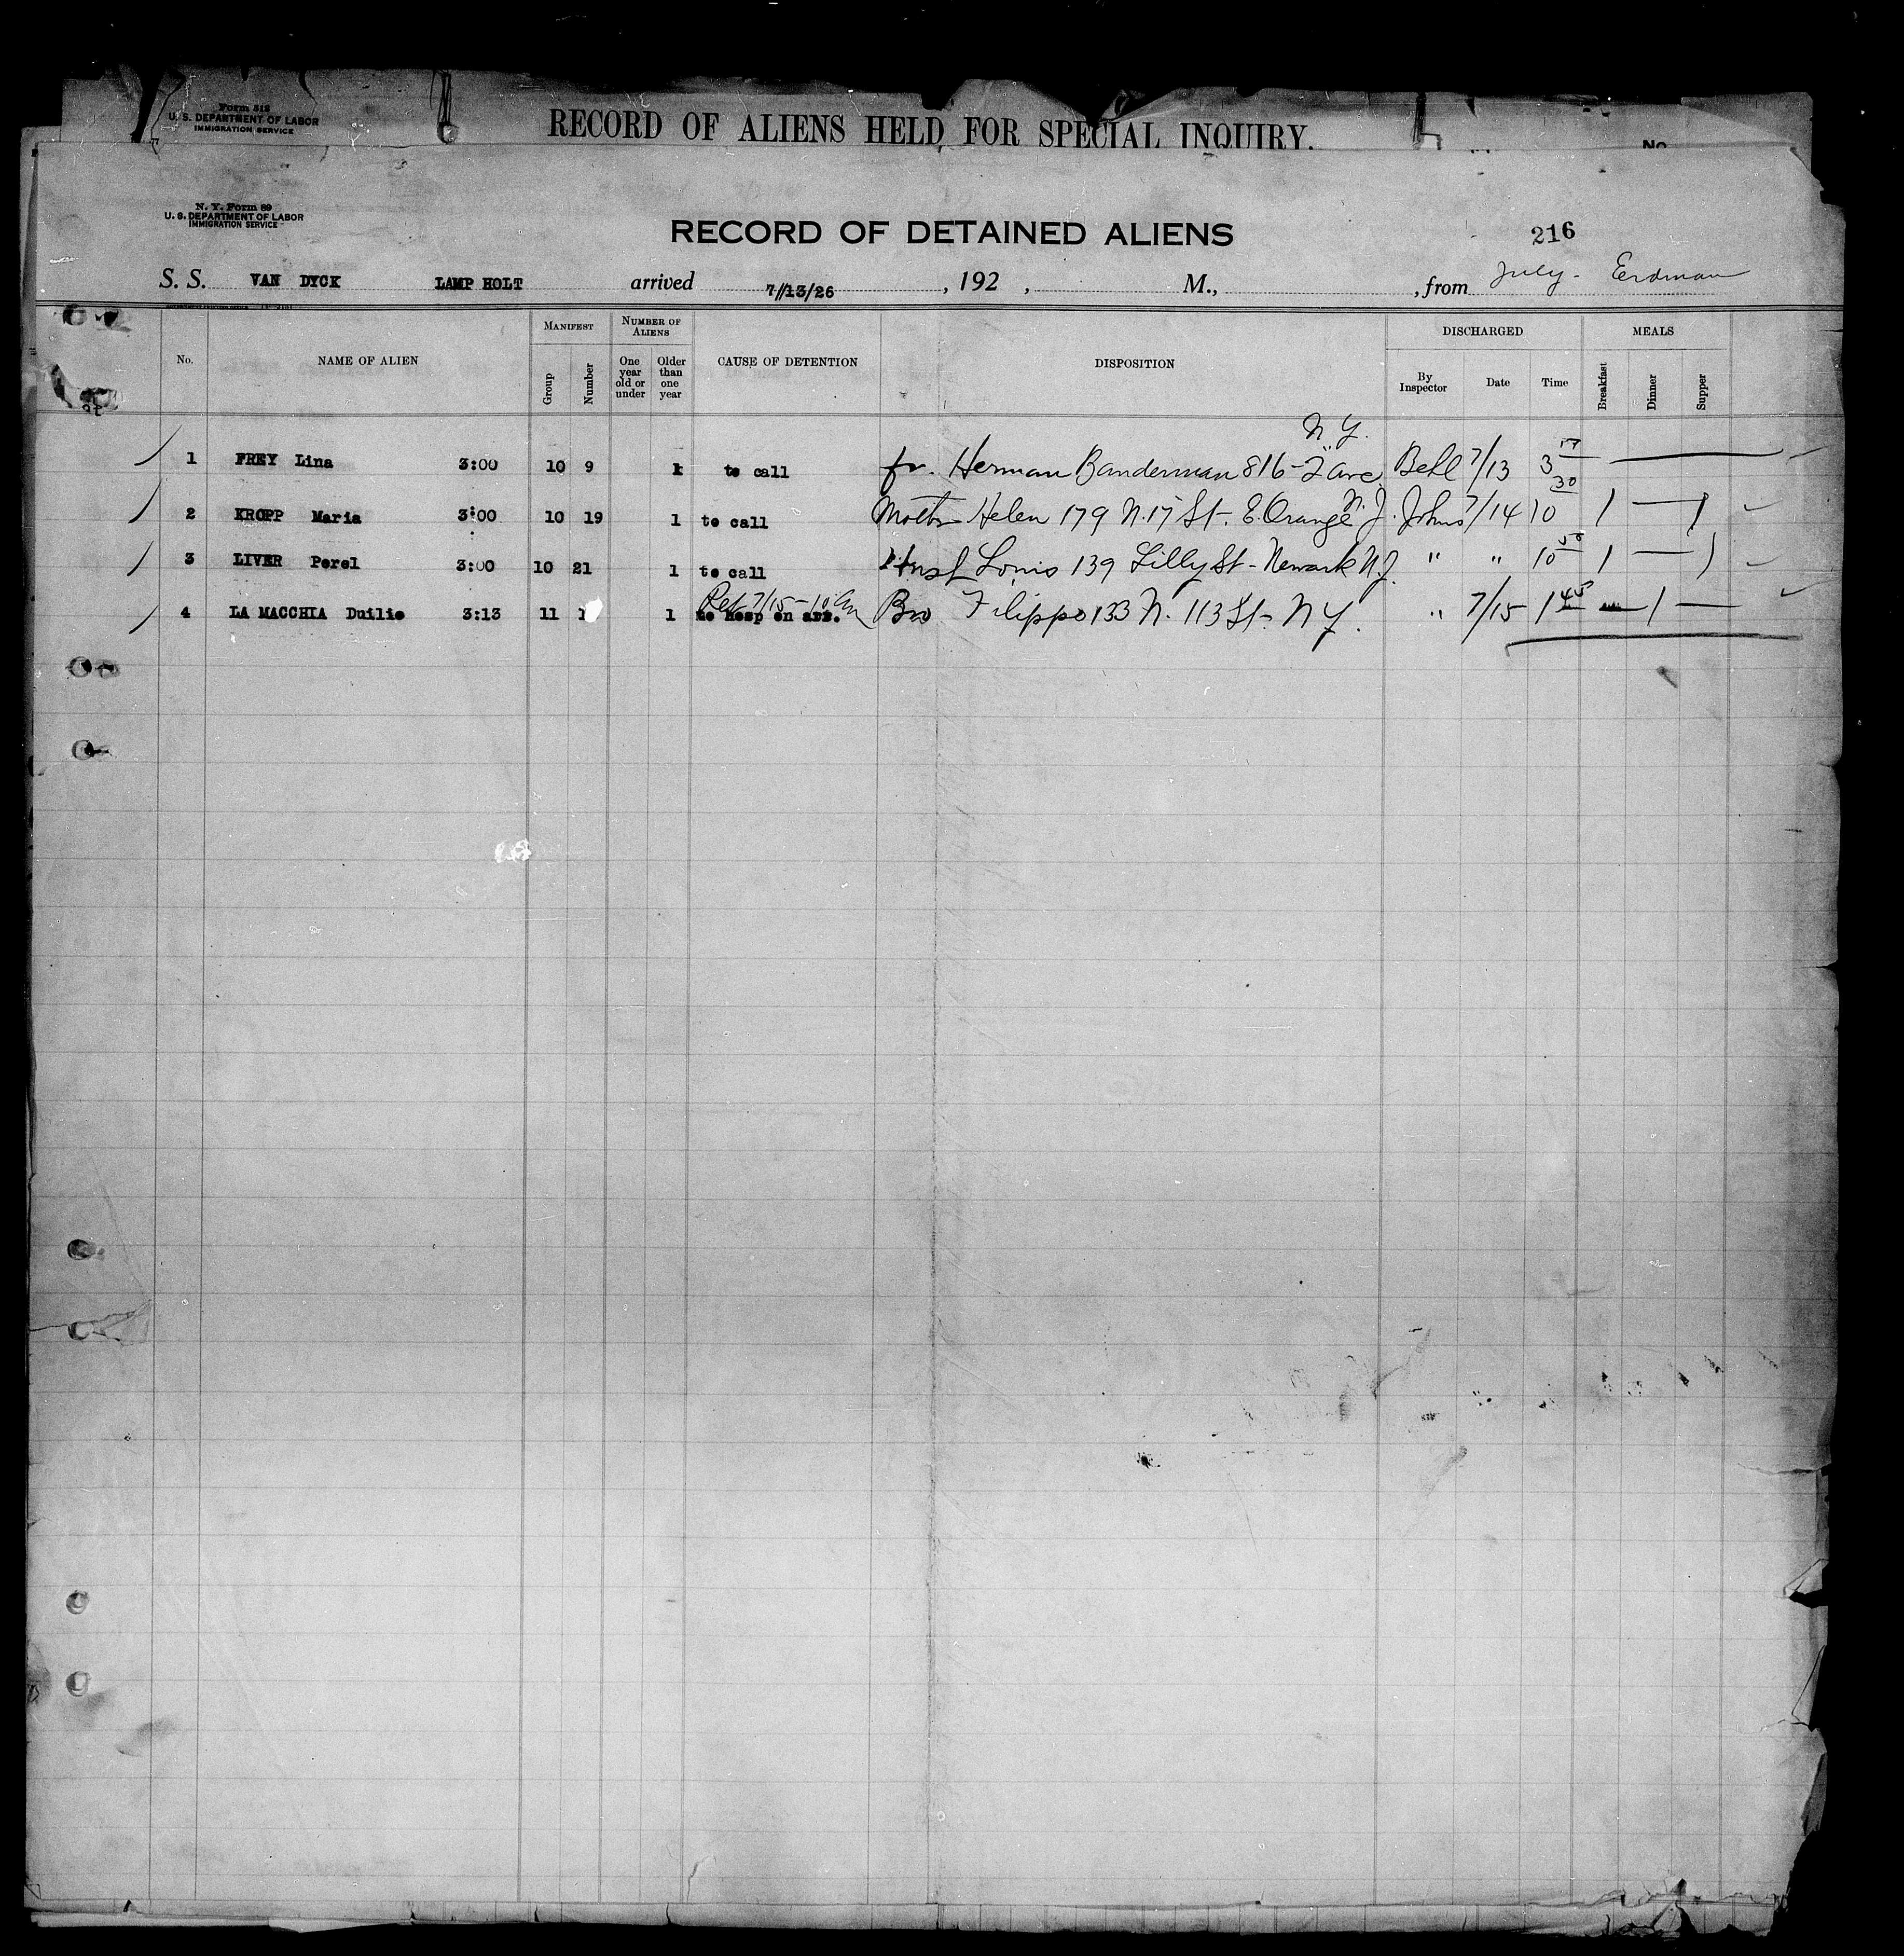 Form 518
U. S. DEPARTMENT OF LABOR
IMMIGRATION SERVICE
RECORD OF ALIENS HELD FOR SPECIAL INQUIRY.
No.
N. Y. Form 89
U. S. DEPARTMENT OF LABOR
IMMIGRATION SERVICE
RECORD OF DETAINED ALIENS
216
S. S. VAN DYCK LAMP HOLT arrived 7/13/26, 192 , M., , from July - Erdman
No. NAME OF ALIEN MANIFEST Group Number NUMBER OF ALIENS One year old or under Older than one year CAUSE OF DETENTION DISPOSITION DISCHARGED By Inspector Date Time MEALS Breakfast Dinner Supper
N.Y.
1 FREY Lina 3:00 10 9 1 to call fr. Herman Banderman 816 - 2 ave. Behl 7/13 3 17
2 KROPP Maria 3:00 10 19 1 to call Moth Helen 179 N. 17 St. E. Orange N.J. Johns 7/14 10 30 1 — 1
3 LIVER Perel 3:00 10 21 1 to call Husb Louis 139 Lilly St - Newark N.J. " " 10 50 1 — 1
Ret 7/15 - 10 am
4 LA MACCHIA Duilio 3:13 11 1 to Hosp on arr. Bro Filippo 133 N. 113 St - N Y. " 7/15 1 45 — 1 —